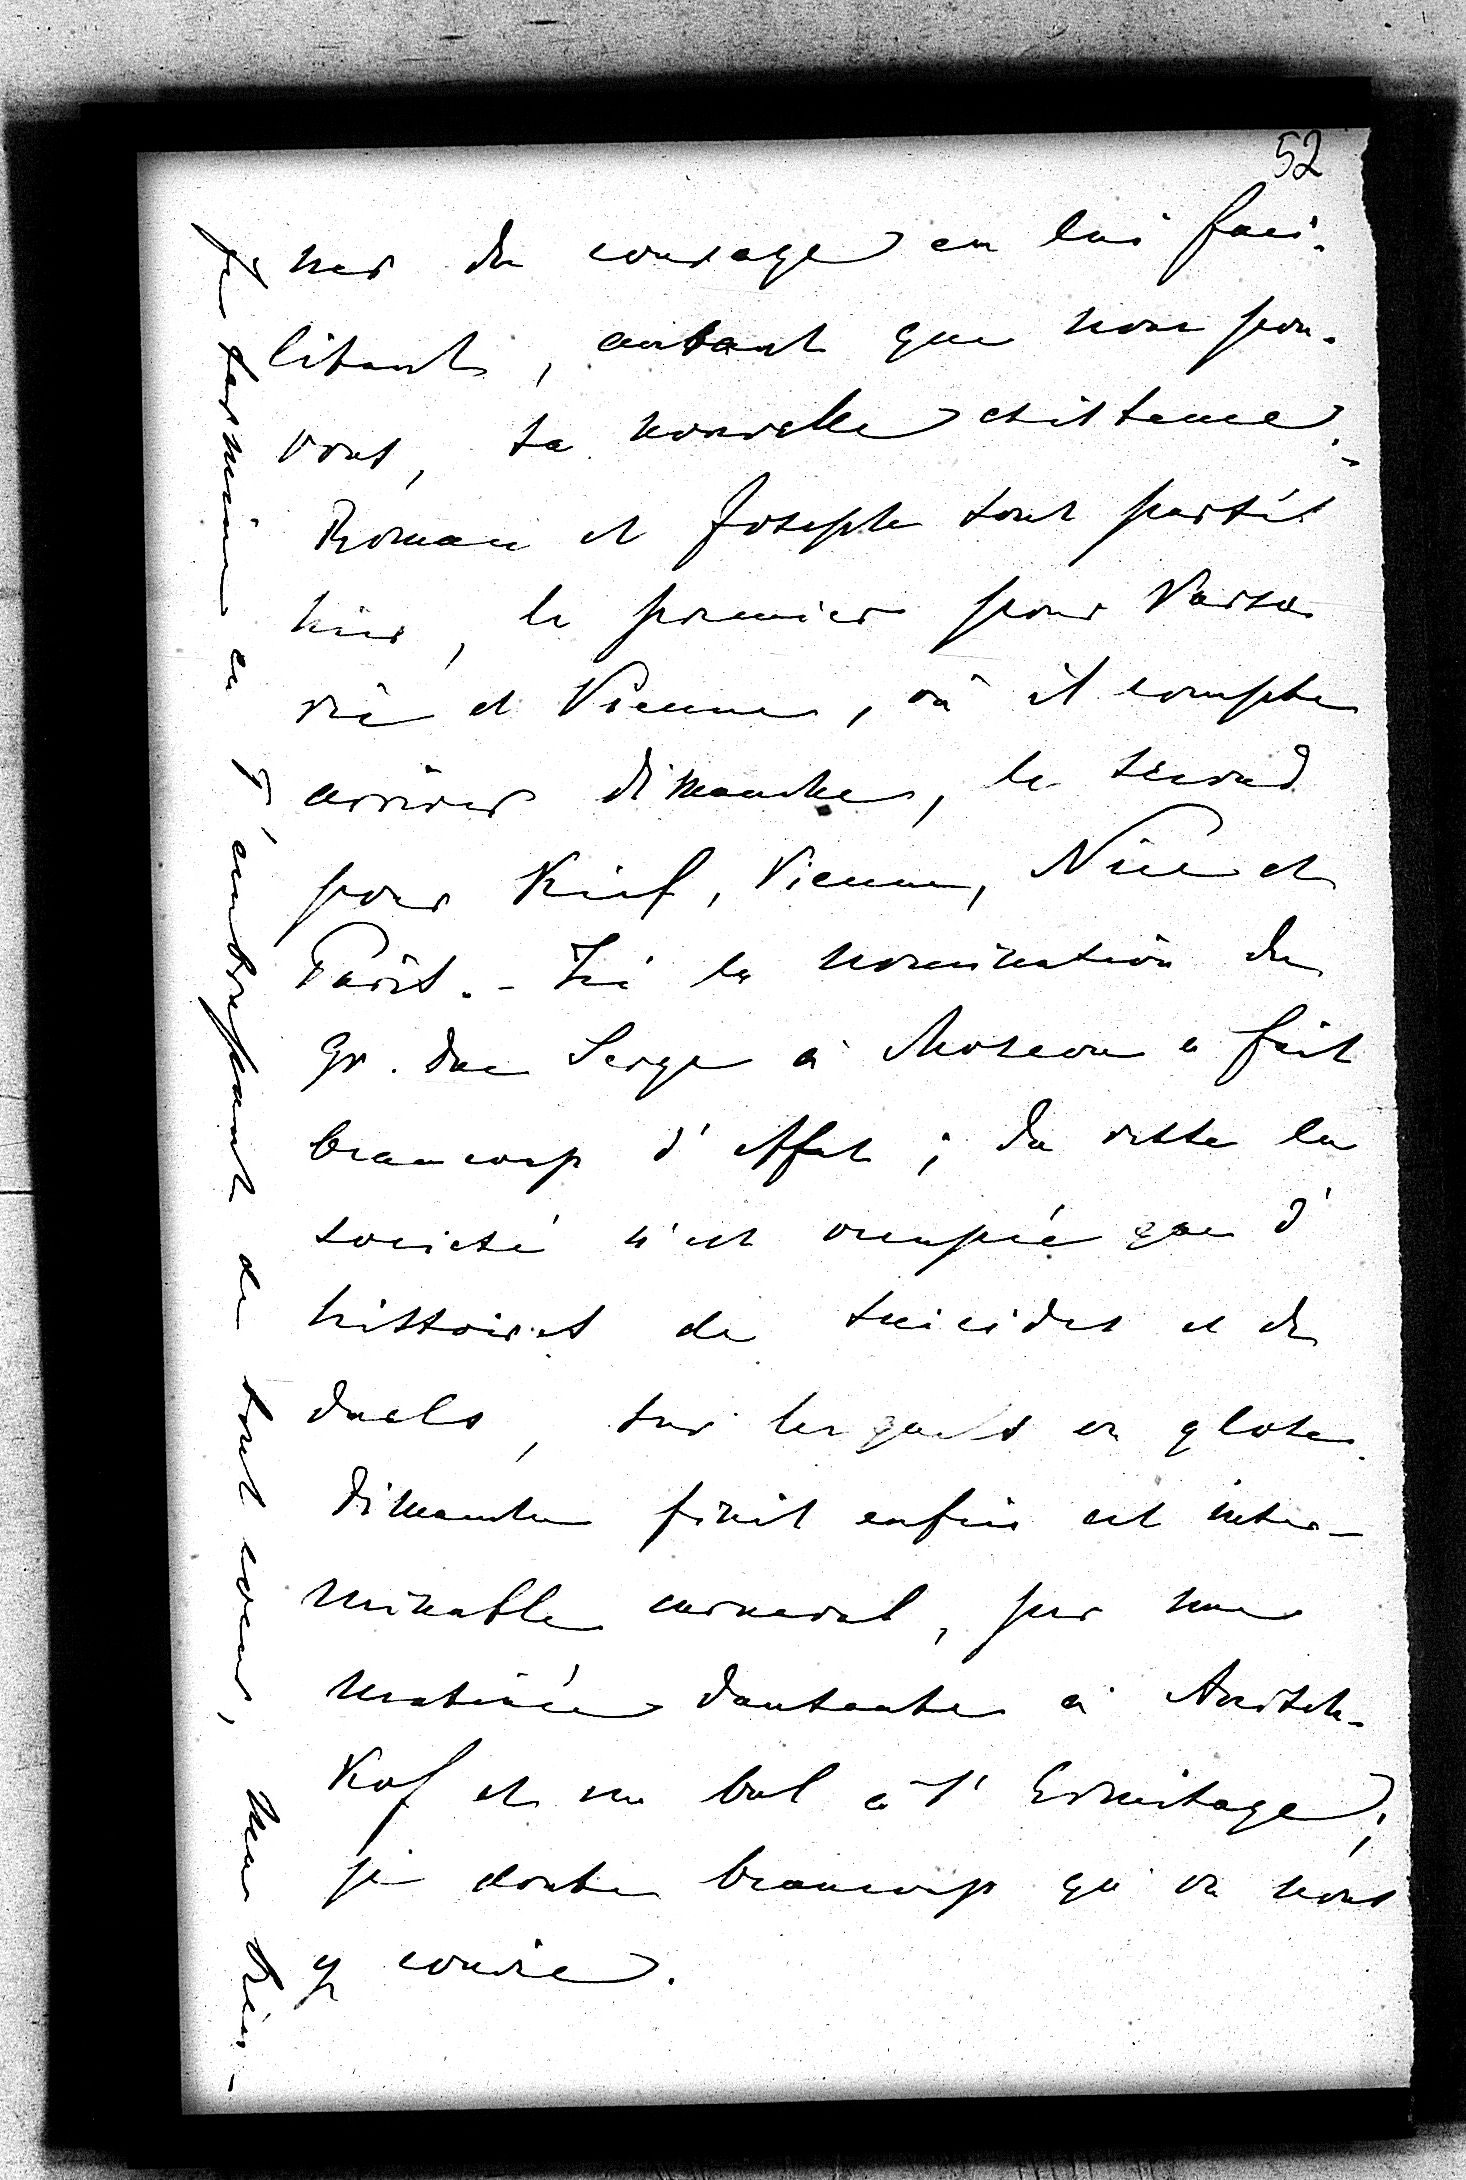 52
ner du courage en lui faci-
litant, autant que nous pou-
vons, sa nouvelle existence. -
Roman et Joseph sont partis
hier, le premier pour Varso
vie et Vienne, où il compte
arriver dimanche, le second
pour Kief, Vienne, Nice et
Paris. - Ici la nomination du
Gr. duc Serge à Moscou a fait
beaucoup d'effet; du reste la
société n'est occupée que d'
histoires de suicides et de
duels, sur lesquels on glose.
Dimanche finit enfin cet inter-
minable carnaval, par une
matinée dansante à Anitch-
kof et un bal à l'Ermitage;
je doute beaucoup qu'on nous
y convie.
Je termine en t'embrassant de tout coeur, mon bien -